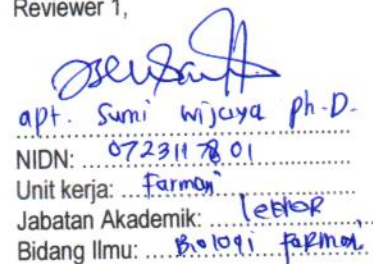 Reviewer 1,
apt. Sumi Wijaya Ph.D.
NIDN: 0723117801
Unit kerja: Farmasi
Jabatan Akademik: Lektor
Bidang Ilmu: Biologi Farmasi